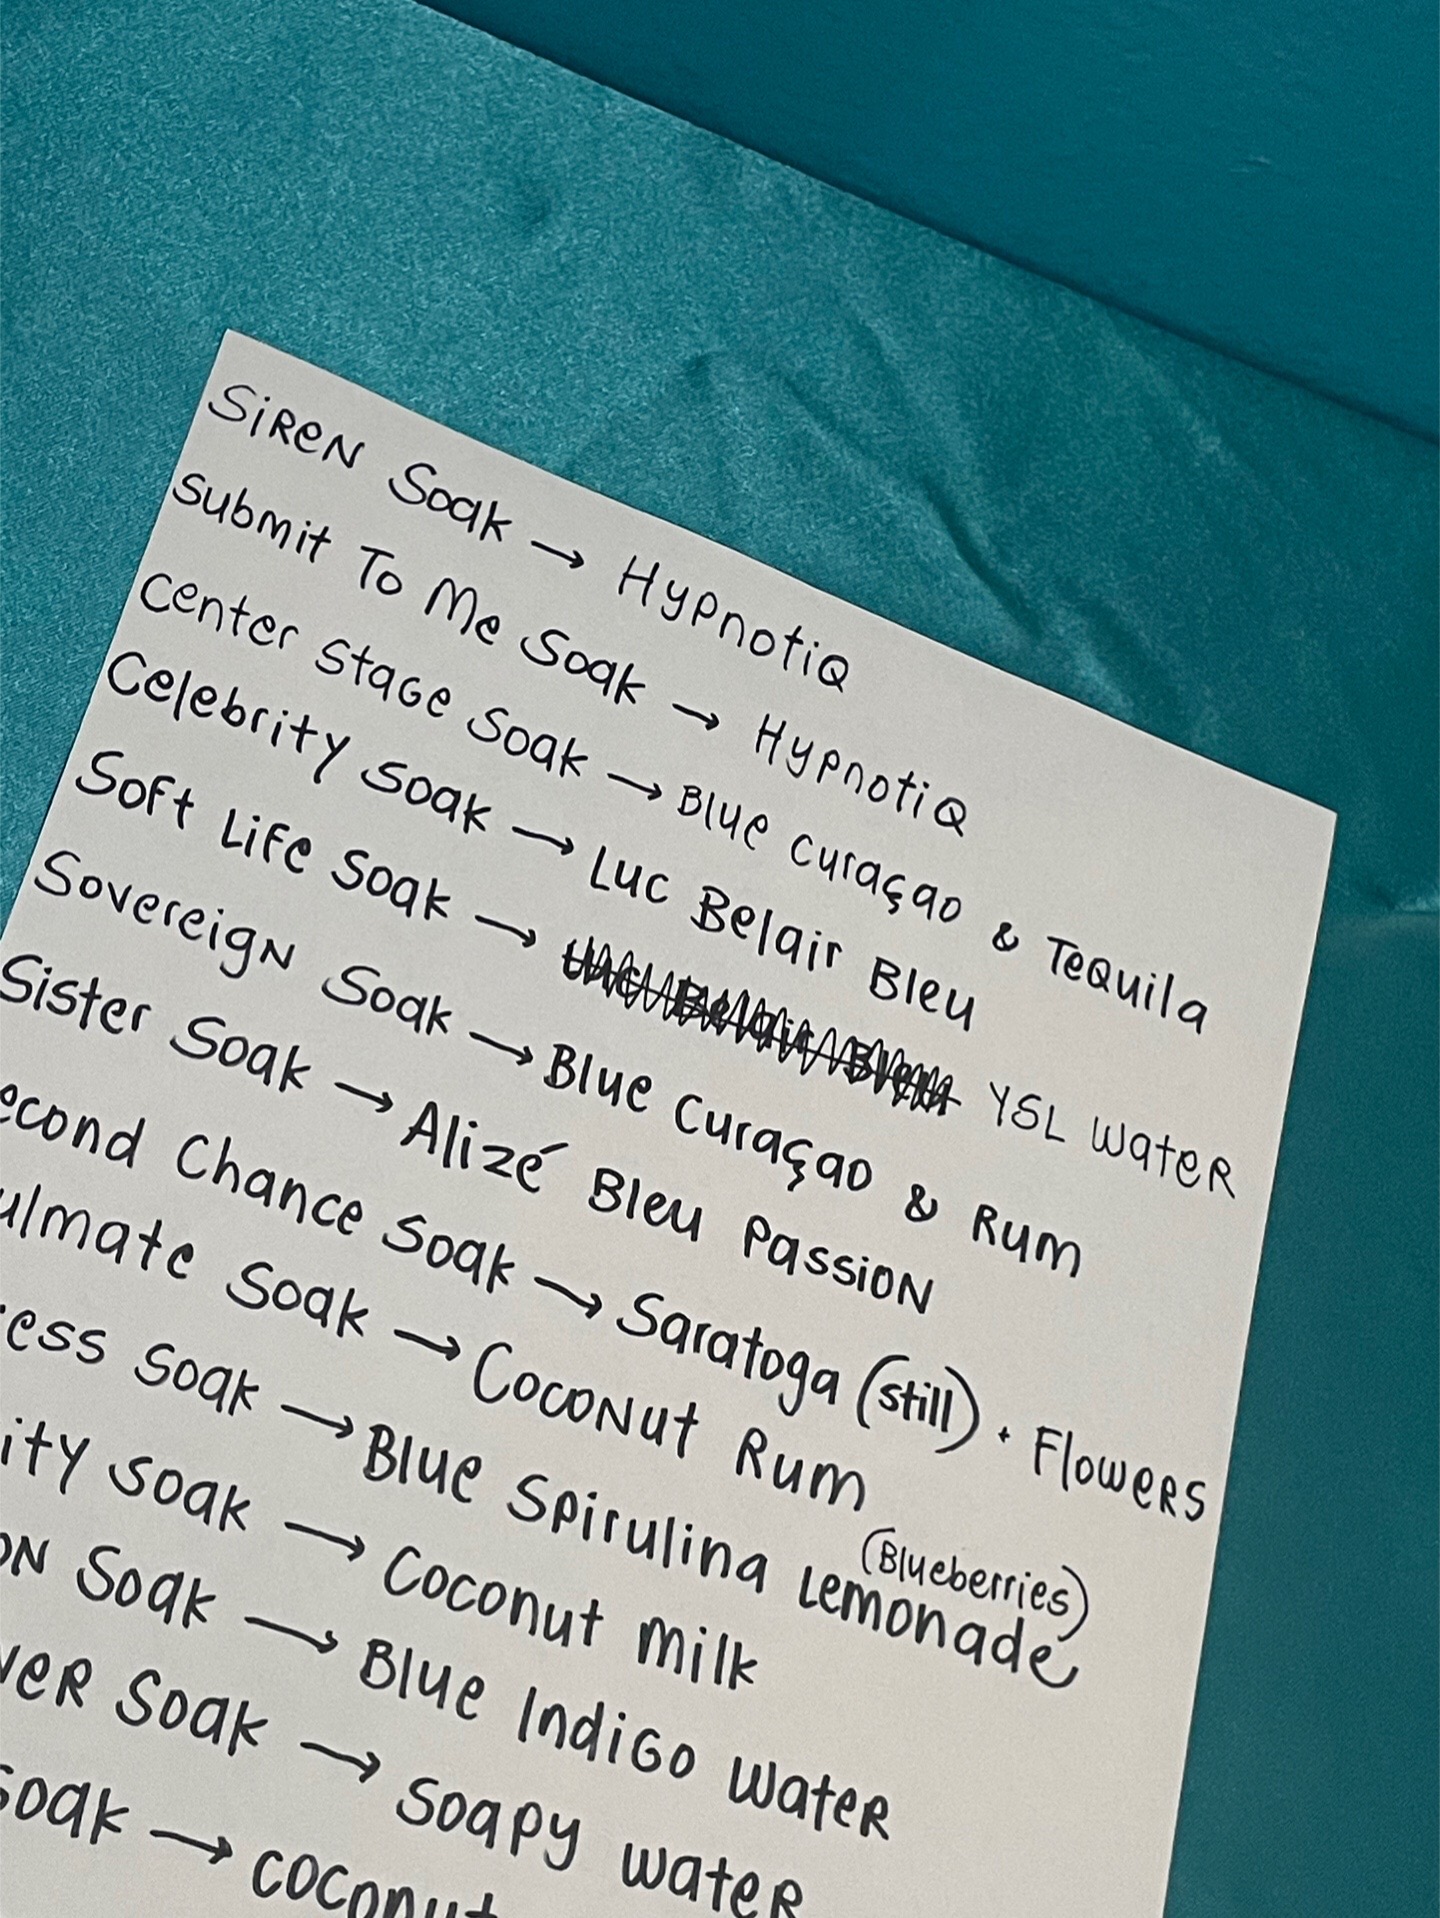 SiReN Soak → HypnotiQ
Submit To Me Soak → HypnotiQ
Center Stage Soak → Blue Curaçao & Tequila
Celebrity Soak → Luc Belair Bleu
Soft Life Soak → Luc Belair Bleu YSL Water
Sovereign Soak → Blue Curaçao & Rum
Sister Soak → Alizé Bleu Passion
econd Chance Soak → Saratoga (still) + Flowers
ulmate Soak → Coconut Rum
ress Soak → Blue Spirulina Lemonade (Blueberries)
ity Soak → Coconut Milk
on Soak → Blue Indigo Water
ver Soak → Soapy Water
Soak → Coconut